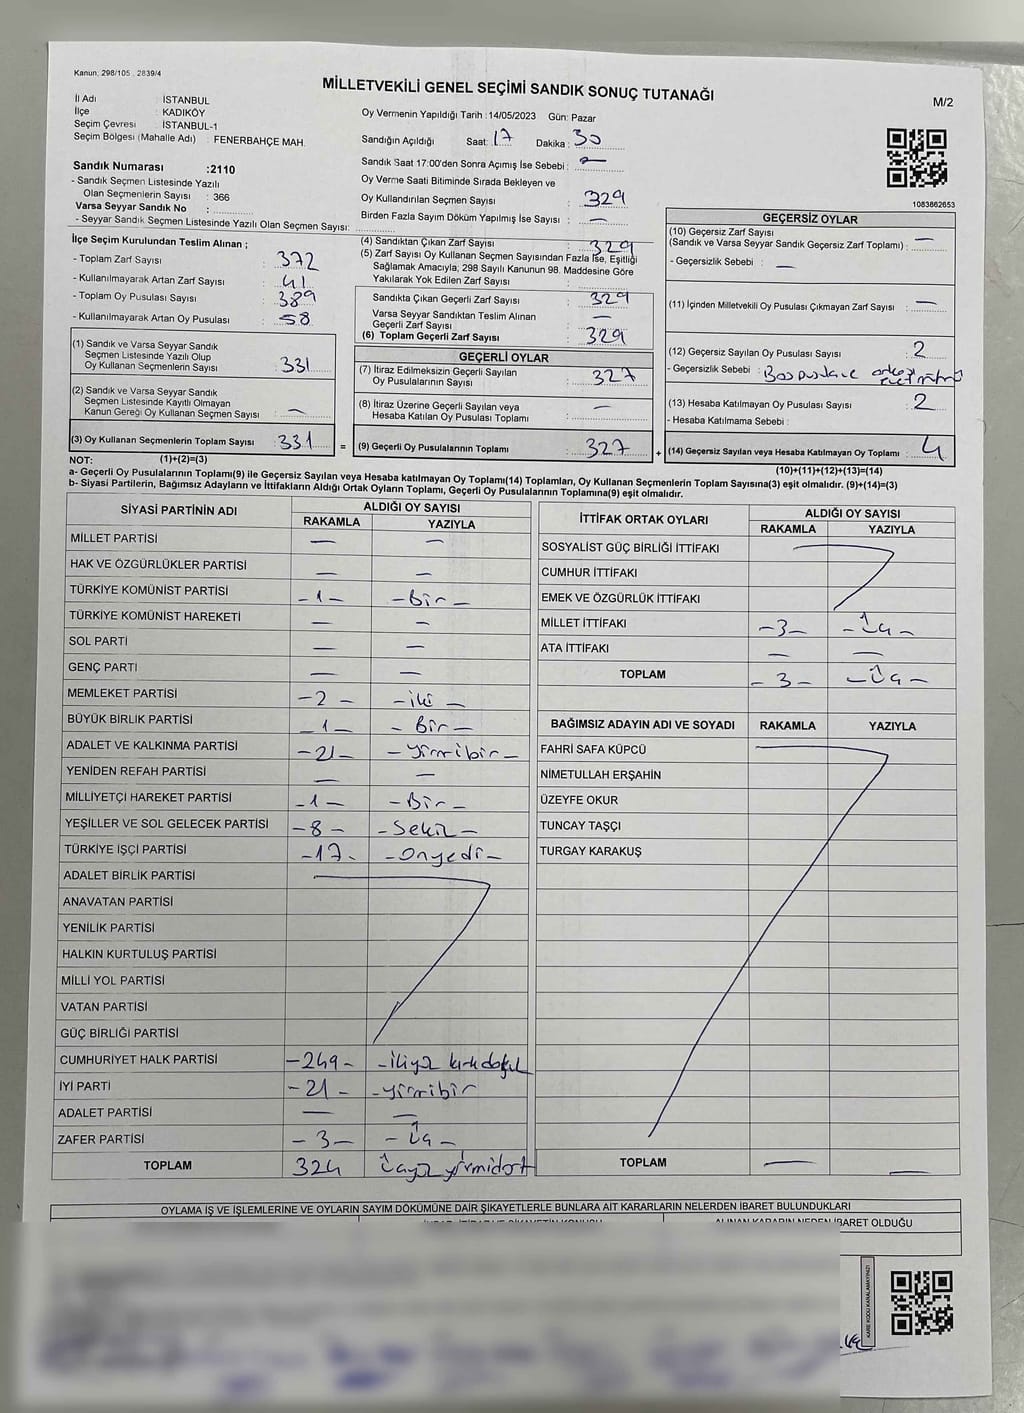 Kanun: 298/105 . 2839/4
MİLLETVEKİLİ GENEL SEÇİMİ SANDIK SONUÇ TUTANAĞI
M/2
İl Adı İSTANBUL
İlçe : KADIKÖY
Seçim Çevresi İSTANBUL-1
Seçim Bölgesi (Mahalle Adı) : FENERBAHÇE MAH.
Sandık Numarası :2110
- Sandık Seçmen Listesinde Yazılı
Olan Seçmenlerin Sayısı : 366
Varsa Seyyar Sandık No :
- Seyyar Sandık Seçmen Listesinde Yazılı Olan Seçmen Sayısı:
Oy Vermenin Yapıldığı Tarih :14/05/2023 Gün: Pazar
Sandığın Açıldığı Saat: 17 Dakika : 30
Sandık Saat 17:00'den Sonra Açımış İse Sebebi : —
Oy Verme Saati Bitiminde Sırada Bekleyen ve
Oy Kullandırılan Seçmen Sayısı : 329
Birden Fazla Sayım Döküm Yapılmış İse Sayısı : —
1083862653
İlçe Seçim Kurulundan Teslim Alınan ;
- Toplam Zarf Sayısı : 372
- Kullanılmayarak Artan Zarf Sayısı : 41
- Toplam Oy Pusulası Sayısı : 389
- Kullanılmayarak Artan Oy Pusulası : 58
(1) Sandık ve Varsa Seyyar Sandık
Seçmen Listesinde Yazılı Olup
Oy Kullanan Seçmenlerin Sayısı : 331
(2) Sandık ve Varsa Seyyar Sandık
Seçmen Listesinde Kayıtlı Olmayan
Kanun Gereği Oy Kullanan Seçmen Sayısı : —
(3) Oy Kullanan Seçmenlerin Toplam Sayısı : 331
(4) Sandıktan Çıkan Zarf Sayısı : 329
(5) Zarf Sayısı Oy Kullanan Seçmen Sayısından Fazla İse, Eşitliği
Sağlamak Amacıyla; 298 Sayılı Kanunun 98. Maddesine Göre
Yakılarak Yok Edilen Zarf Sayısı :
Sandıkta Çıkan Geçerli Zarf Sayısı : 329
Varsa Seyyar Sandıktan Teslim Alınan
Geçerli Zarf Sayısı : —
(6) Toplam Geçerli Zarf Sayısı : 329
GEÇERLİ OYLAR
(7) İtiraz Edilmeksizin Geçerli Sayılan
Oy Pusulalarının Sayısı : 327
(8) İtiraz Üzerine Geçerli Sayılan veya
Hesaba Katılan Oy Pusulası Toplamı : —
= (9) Geçerli Oy Pusulalarının Toplamı : 327
GEÇERSİZ OYLAR
(10) Geçersiz Zarf Sayısı
(Sandık ve Varsa Seyyar Sandık Geçersiz Zarf Toplamı) : —
- Geçersizlik Sebebi : —
(11) İçinden Milletvekili Oy Pusulası Çıkmayan Zarf Sayısı : —
(12) Geçersiz Sayılan Oy Pusulası Sayısı : 2
- Geçersizlik Sebebi : Boş pusula ve
(13) Hesaba Katılmayan Oy Pusulası Sayısı : 2
- Hesaba Katılmama Sebebi :
+ (14) Geçersiz Sayılan veya Hesaba Katılmayan Oy Toplamı : 4
NOT: (1)+(2)=(3) (10)+(11)+(12)+(13)=(14)
a- Geçerli Oy Pusulalarının Toplamı(9) ile Geçersiz Sayılan veya Hesaba katılmayan Oy Toplamı(14) Toplamları, Oy Kullanan Seçmenlerin Toplam Sayısına(3) eşit olmalıdır. (9)+(14)=(3)
b- Siyasi Partilerin, Bağımsız Adayların ve İttifakların Aldığı Ortak Oyların Toplamı, Geçerli Oy Pusulalarının Toplamına(9) eşit olmalıdır.
SİYASİ PARTİNİN ADI ALDIĞI OY SAYISI
RAKAMLA YAZIYLA
MİLLET PARTİSİ — —
HAK VE ÖZGÜRLÜKLER PARTİSİ — —
TÜRKİYE KOMÜNİST PARTİSİ -1- -Bir-
TÜRKİYE KOMÜNİST HAREKETİ — —
SOL PARTİ — —
GENÇ PARTİ — —
MEMLEKET PARTİSİ -2- -iki-
BÜYÜK BİRLİK PARTİSİ -1- -Bir-
ADALET VE KALKINMA PARTİSİ -21- -yirmibir-
YENİDEN REFAH PARTİSİ — —
MİLLİYETÇİ HAREKET PARTİSİ -1- -Bir-
YEŞİLLER VE SOL GELECEK PARTİSİ -8- -Sekiz-
TÜRKİYE İŞÇİ PARTİSİ -17- -Onyedi-
ADALET BİRLİK PARTİSİ
ANAVATAN PARTİSİ
YENİLİK PARTİSİ
HALKIN KURTULUŞ PARTİSİ
MİLLİ YOL PARTİSİ
VATAN PARTİSİ
GÜÇ BİRLİĞİ PARTİSİ
CUMHURİYET HALK PARTİSİ -249- -ikiyüz kırkdokuz
İYİ PARTİ -21- -yirmibir
ADALET PARTİSİ — —
ZAFER PARTİSİ -3- -Üç-
TOPLAM 324 üçyüz yirmidört
İTTİFAK ORTAK OYLARI ALDIĞI OY SAYISI
RAKAMLA YAZIYLA
SOSYALİST GÜÇ BİRLİĞİ İTTİFAKI
CUMHUR İTTİFAKI
EMEK VE ÖZGÜRLÜK İTTİFAKI
MİLLET İTTİFAKI -3- -Üç-
ATA İTTİFAKI — —
TOPLAM -3- -Üç-
BAĞIMSIZ ADAYIN ADI VE SOYADI RAKAMLA YAZIYLA
FAHRİ SAFA KÜPCÜ
NİMETULLAH ERŞAHİN
ÜZEYFE OKUR
TUNCAY TAŞÇI
TURGAY KARAKUŞ
TOPLAM — —
OYLAMA İŞ VE İŞLEMLERİNE VE OYLARIN SAYIM DÖKÜMÜNE DAİR ŞİKAYETLERLE BUNLARA AİT KARARLARIN NELERDEN İBARET BULUNDUKLARI
ALINAN KARARIN NEDEN İBARET OLDUĞU
KARE KODU KARALAMAYINIZ!